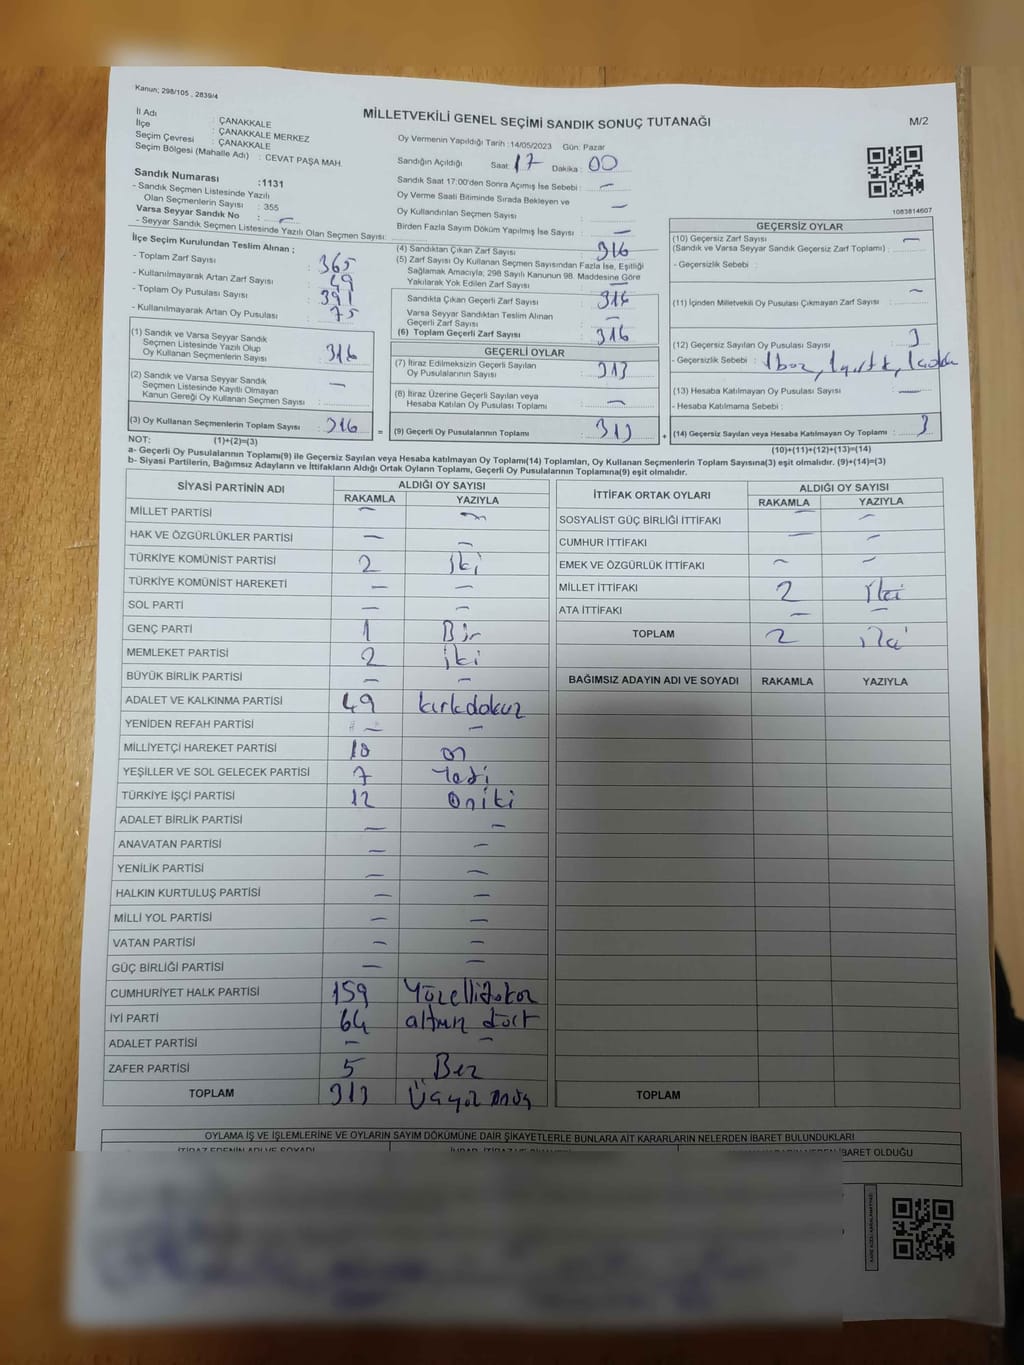 Kanun; 298/105 , 2839/4
MİLLETVEKİLİ GENEL SEÇİMİ SANDIK SONUÇ TUTANAĞI
M/2
İl Adı : ÇANAKKALE
İlçe : ÇANAKKALE MERKEZ
Seçim Çevresi : ÇANAKKALE
Seçim Bölgesi (Mahalle Adı) : CEVAT PAŞA MAH.
Sandık Numarası :1131
- Sandık Seçmen Listesinde Yazılı
Olan Seçmenlerin Sayısı : 355
Varsa Seyyar Sandık No : –
- Seyyar Sandık Seçmen Listesinde Yazılı Olan Seçmen Sayısı:
Oy Vermenin Yapıldığı Tarih :14/05/2023 Gün: Pazar
Sandığın Açıldığı Saat: 17 Dakika : 00
Sandık Saat 17:00'den Sonra Açımış İse Sebebi : –
Oy Verme Saati Bitiminde Sırada Bekleyen ve
Oy Kullandırılan Seçmen Sayısı : –
Birden Fazla Sayım Döküm Yapılmış İse Sayısı : –
1083814607
İlçe Seçim Kurulundan Teslim Alınan ;
- Toplam Zarf Sayısı : 365
- Kullanılmayarak Artan Zarf Sayısı : 49
- Toplam Oy Pusulası Sayısı : 391
- Kullanılmayarak Artan Oy Pusulası : 75
(1) Sandık ve Varsa Seyyar Sandık
Seçmen Listesinde Yazılı Olup
Oy Kullanan Seçmenlerin Sayısı : 316
(2) Sandık ve Varsa Seyyar Sandık
Seçmen Listesinde Kayıtlı Olmayan
Kanun Gereği Oy Kullanan Seçmen Sayısı : –
(3) Oy Kullanan Seçmenlerin Toplam Sayısı : 316 =
(4) Sandıktan Çıkan Zarf Sayısı : 316
(5) Zarf Sayısı Oy Kullanan Seçmen Sayısından Fazla İse, Eşitliği
Sağlamak Amacıyla; 298 Sayılı Kanunun 98. Maddesine Göre
Yakılarak Yok Edilen Zarf Sayısı : –
Sandıkta Çıkan Geçerli Zarf Sayısı : 316
Varsa Seyyar Sandıktan Teslim Alınan
Geçerli Zarf Sayısı : –
(6) Toplam Geçerli Zarf Sayısı : 316
GEÇERLİ OYLAR
(7) İtiraz Edilmeksizin Geçerli Sayılan
Oy Pusulalarının Sayısı : 313
(8) İtiraz Üzerine Geçerli Sayılan veya
Hesaba Katılan Oy Pusulası Toplamı : –
(9) Geçerli Oy Pusulalarının Toplamı : 313 +
GEÇERSİZ OYLAR
(10) Geçersiz Zarf Sayısı –
(Sandık ve Varsa Seyyar Sandık Geçersiz Zarf Toplamı) :
- Geçersizlik Sebebi :
(11) İçinden Milletvekili Oy Pusulası Çıkmayan Zarf Sayısı : –
(12) Geçersiz Sayılan Oy Pusulası Sayısı : 3
- Geçersizlik Sebebi : 1 boz, 1 yırtık,
(13) Hesaba Katılmayan Oy Pusulası Sayısı : –
- Hesaba Katılmama Sebebi :
(14) Geçersiz Sayılan veya Hesaba Katılmayan Oy Toplamı : 3
NOT: (1)+(2)=(3) (10)+(11)+(12)+(13)=(14)
a- Geçerli Oy Pusulalarının Toplamı(9) ile Geçersiz Sayılan veya Hesaba Katılmayan Oy Toplamı(14) Toplamları, Oy Kullanan Seçmenlerin Toplam Sayısına(3) eşit olmalıdır. (9)+(14)=(3)
b- Siyasi Partilerin, Bağımsız Adayların ve İttifakların Aldığı Ortak Oyların Toplamı, Geçerli Oy Pusulalarının Toplamına(9) eşit olmalıdır.
SİYASİ PARTİNİN ADI ALDIĞI OY SAYISI
RAKAMLA YAZIYLA
MİLLET PARTİSİ – –
HAK VE ÖZGÜRLÜKLER PARTİSİ – –
TÜRKİYE KOMÜNİST PARTİSİ 2 iki
TÜRKİYE KOMÜNİST HAREKETİ – –
SOL PARTİ – –
GENÇ PARTİ 1 Bir
MEMLEKET PARTİSİ 2 iki
BÜYÜK BİRLİK PARTİSİ – –
ADALET VE KALKINMA PARTİSİ 49 kırkdokuz
YENİDEN REFAH PARTİSİ – –
MİLLİYETÇİ HAREKET PARTİSİ 10 on
YEŞİLLER VE SOL GELECEK PARTİSİ 7 Yedi
TÜRKİYE İŞÇİ PARTİSİ 12 Oniki
ADALET BİRLİK PARTİSİ – –
ANAVATAN PARTİSİ – –
YENİLİK PARTİSİ – –
HALKIN KURTULUŞ PARTİSİ – –
MİLLİ YOL PARTİSİ – –
VATAN PARTİSİ – –
GÜÇ BİRLİĞİ PARTİSİ – –
CUMHURİYET HALK PARTİSİ 159 Yüzellidokuz
İYİ PARTİ 64 altmış dört
ADALET PARTİSİ – –
ZAFER PARTİSİ 5 Beş
TOPLAM 313 Üçyüz onüç
İTTİFAK ORTAK OYLARI ALDIĞI OY SAYISI
RAKAMLA YAZIYLA
SOSYALİST GÜÇ BİRLİĞİ İTTİFAKI – –
CUMHUR İTTİFAKI – –
EMEK VE ÖZGÜRLÜK İTTİFAKI – –
MİLLET İTTİFAKI 2 iki
ATA İTTİFAKI – –
TOPLAM 2 iki
BAĞIMSIZ ADAYIN ADI VE SOYADI RAKAMLA YAZIYLA
TOPLAM
OYLAMA İŞ VE İŞLEMLERİNE VE OYLARIN SAYIM DÖKÜMÜNE DAİR ŞİKAYETLERLE BUNLARA AİT KARARLARIN NELERDEN İBARET BULUNDUKLARI
İTİRAZ EDENİN ADI VE SOYADI
İBARET OLDUĞU